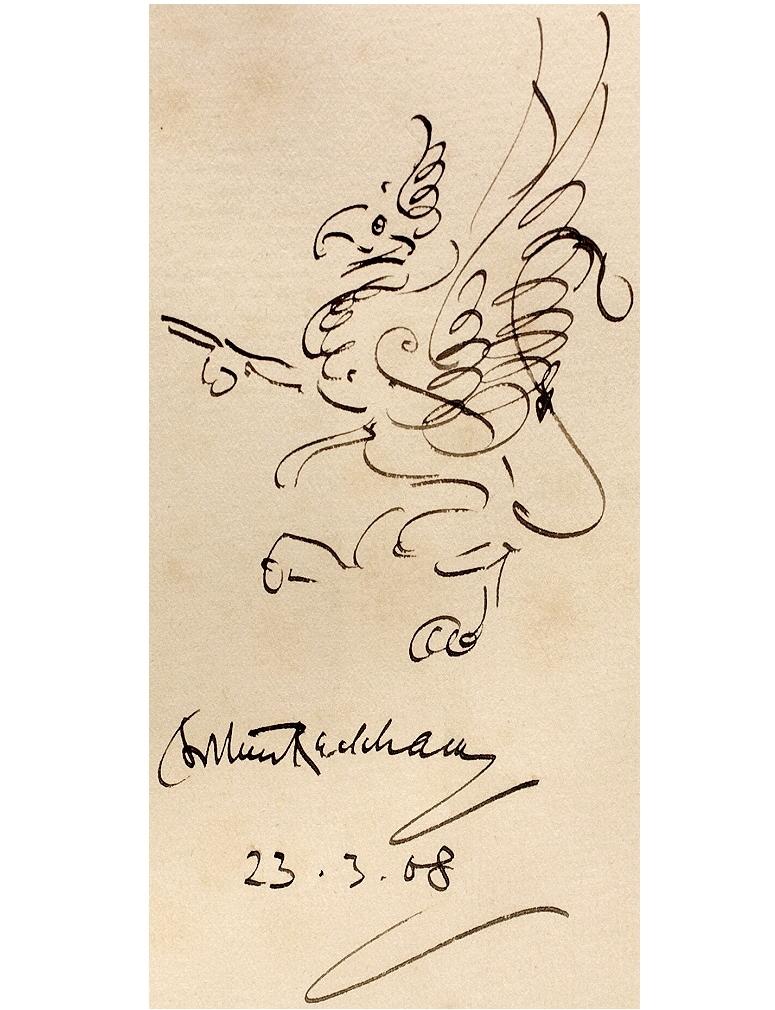 Arthur Rackham
23.3.08